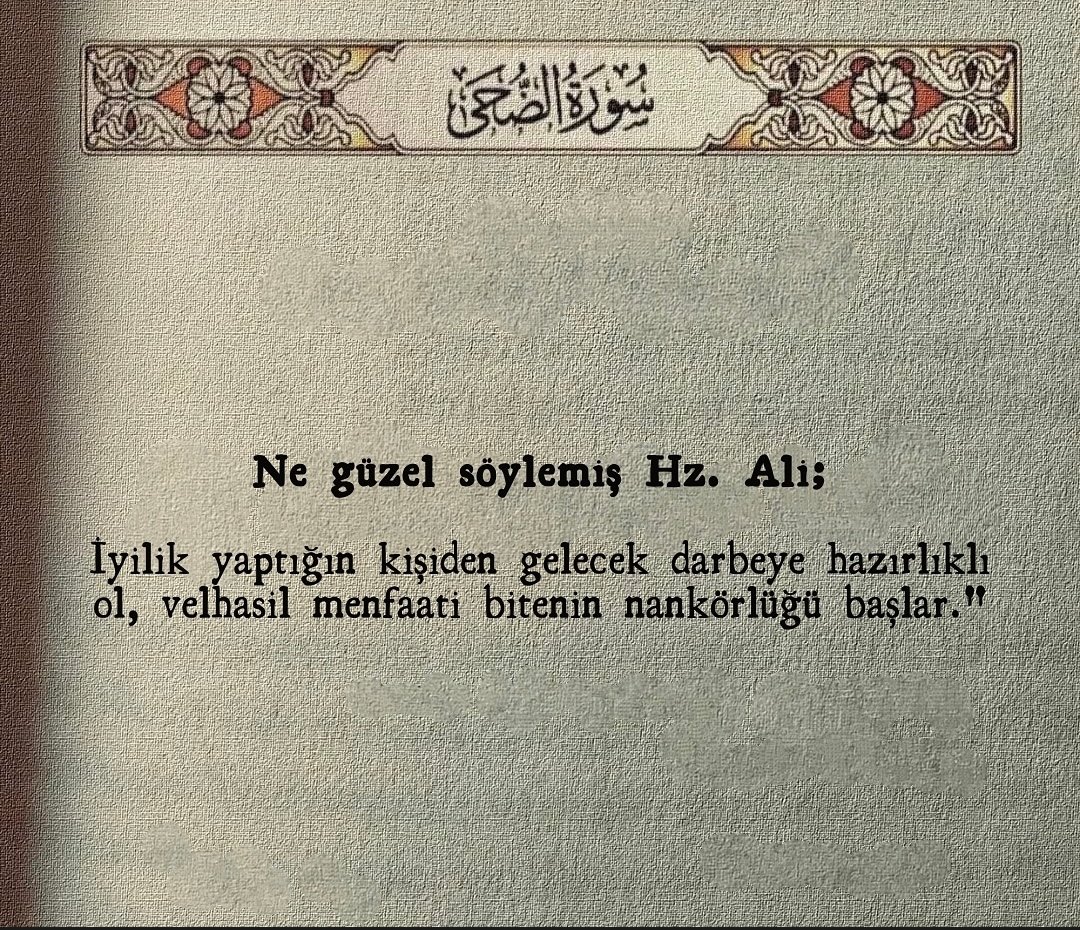 سُورَةُ الضُّحَىٰ
Ne güzel söylemiş Hz. Ali;
İyilik yaptığın kişiden gelecek darbeye hazırlıklı
ol, velhasil menfaati bitenin nankörlüğü başlar."